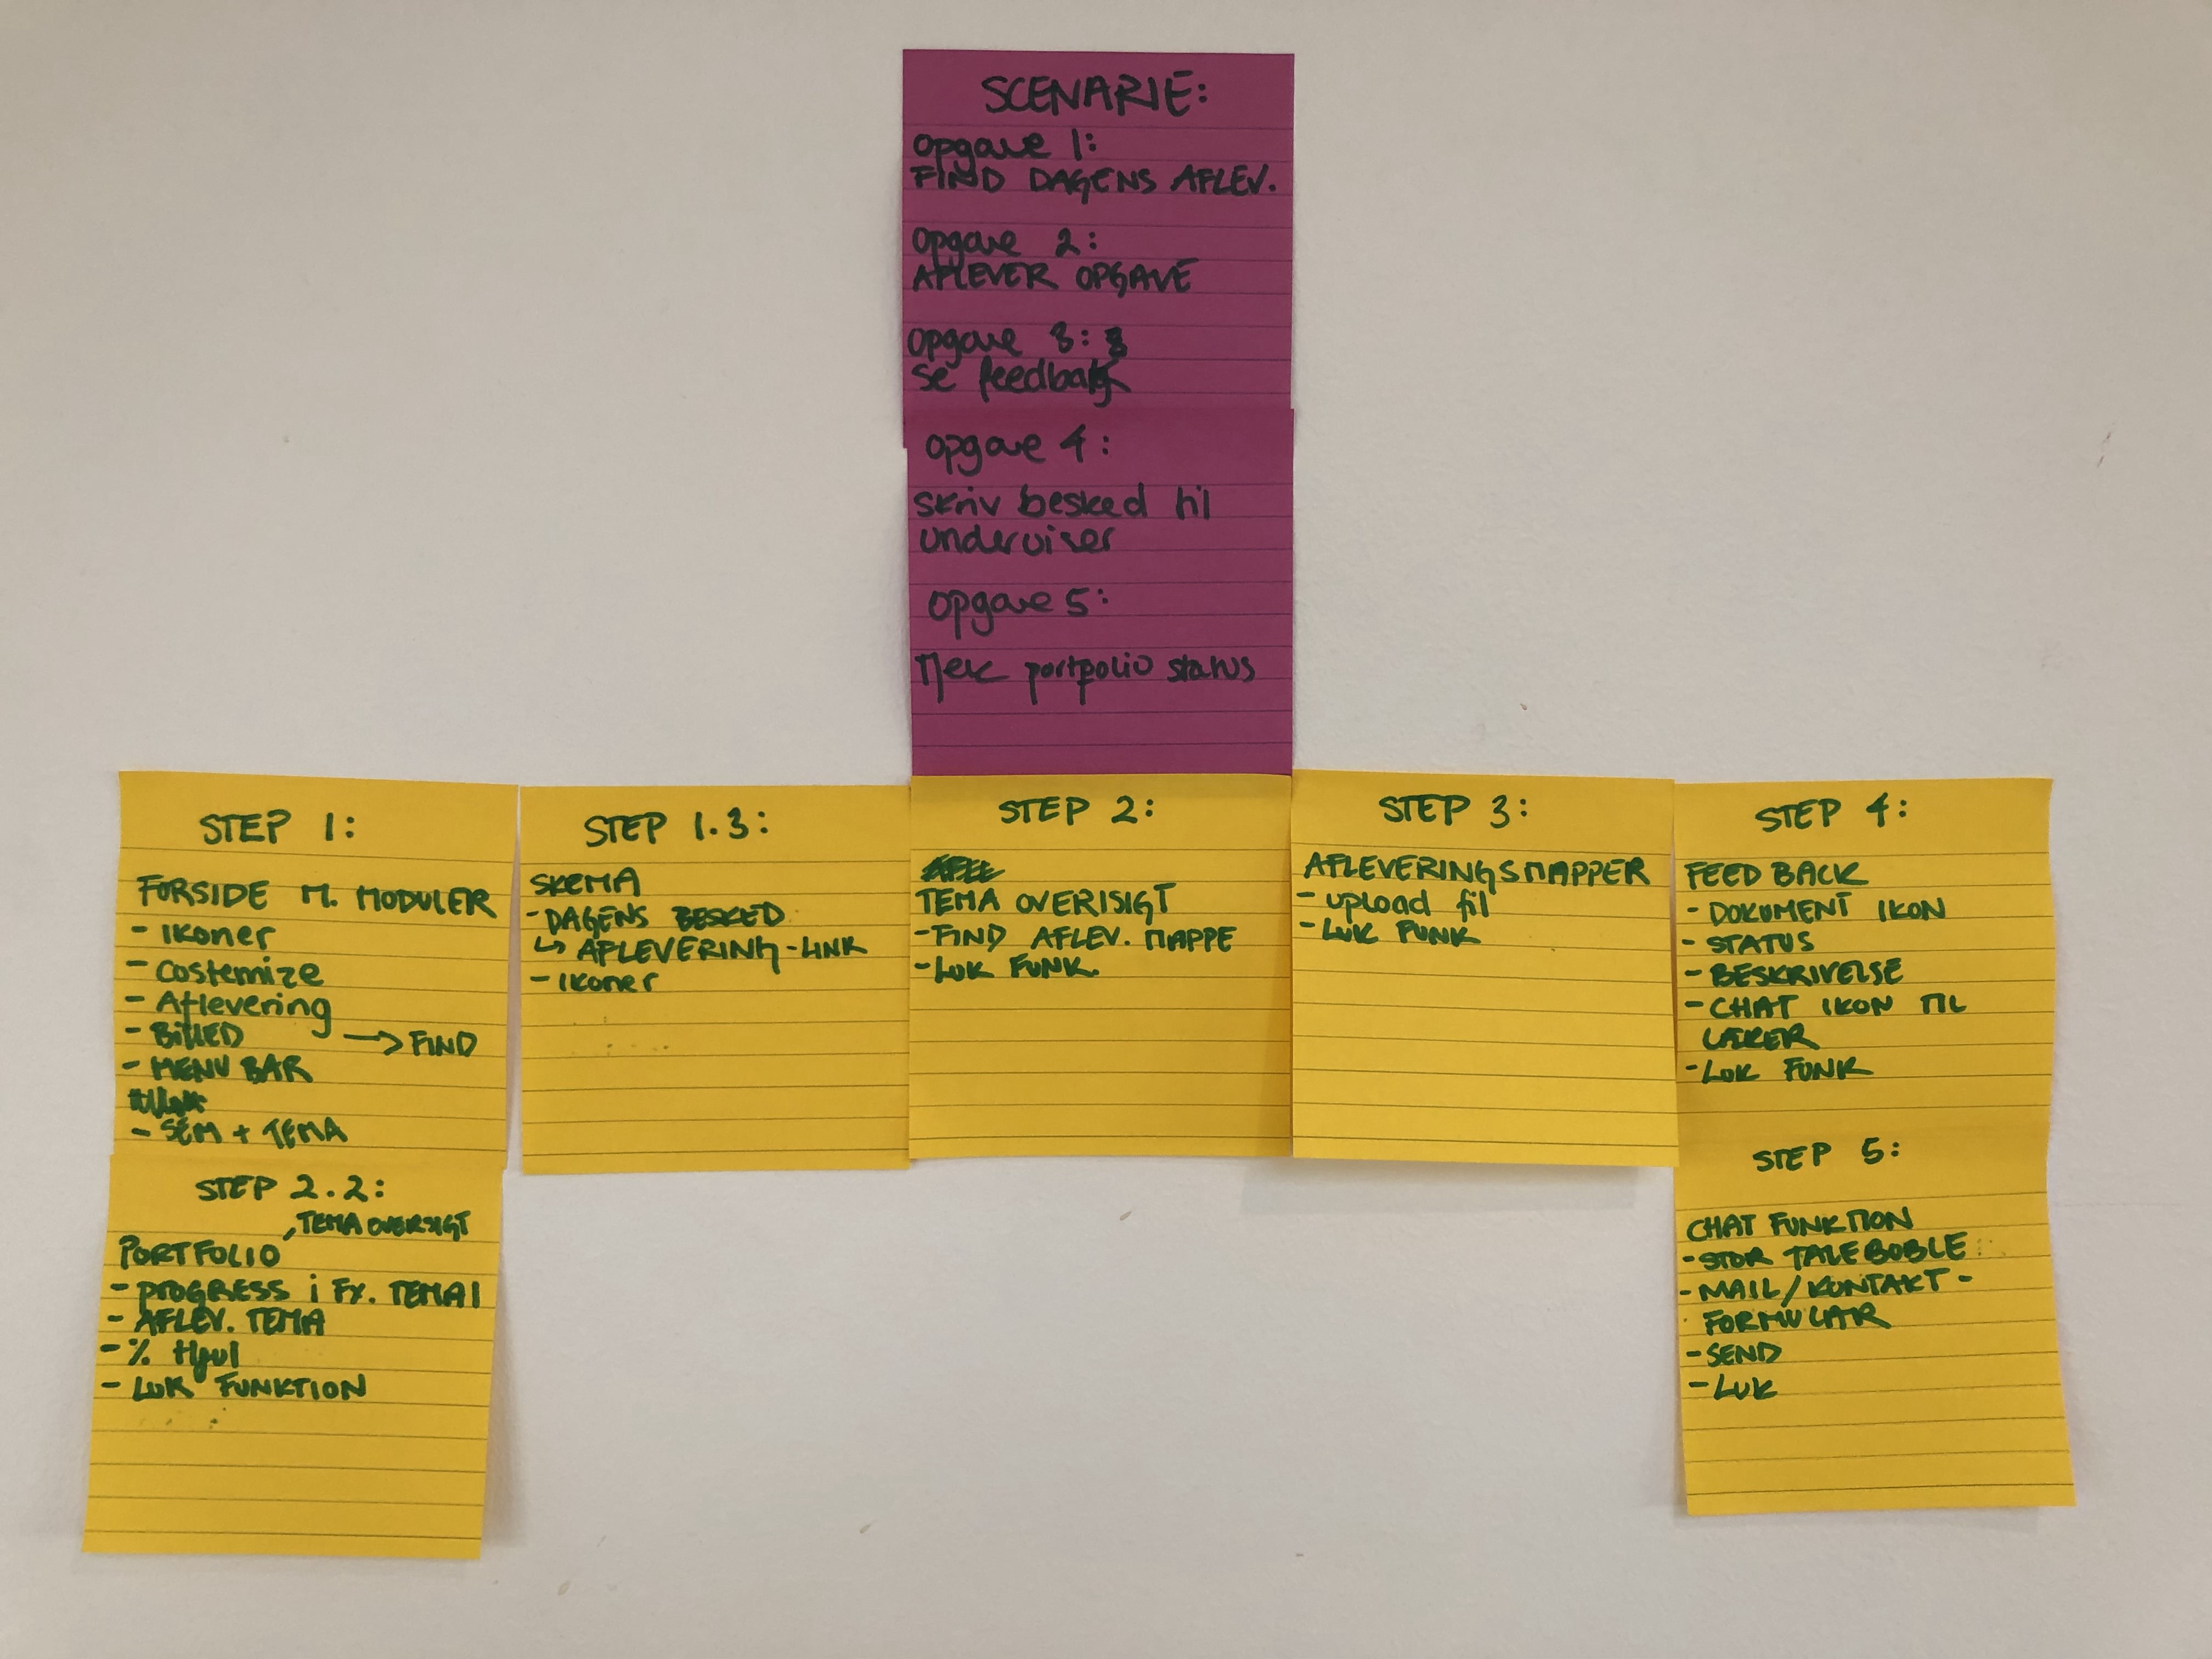 SCENARIE:
Opgave 1:
FIND DAGENS AFLEV.
Opgave 2:
AFLEVER OPGAVE
Opgave 3:
se feedback
Opgave 4:
Skriv besked til
underviser
Opgave 5:
Tjek portfolio status
STEP 1:
FORSIDE M. MODULER
- Ikoner
- Costemize
- Aflevering
- BILLED
→ FIND
- MENU BAR
- SEM + TEMA
STEP 2.2:
, TEMA OVERSIGT
PORTFOLIO
- PROGRESS i FX. TEMA 1
- AFLEV. TEMA
- % Hjul
- LUK FUNKTION
STEP 1.3:
SKEMA
- DAGENS BESKED
↳ AFLEVERING-LINK
- Ikoner
STEP 2:
TEMA OVERISIGT
- FIND AFLEV. MAPPE
- LUK FUNK.
STEP 3:
AFLEVERINGSMAPPER
- upload fil
- LUK FUNK
STEP 4:
FEED BACK
- DOKUMENT IKON
- STATUS
- BESKRIVELSE
- CHAT IKON TIL
LÆRER
- LUK FUNK
STEP 5:
CHAT FUNKTION
- STOR TALEBOBLE
- MAIL/KONTAKT-
FORMULAR
- SEND
- LUK